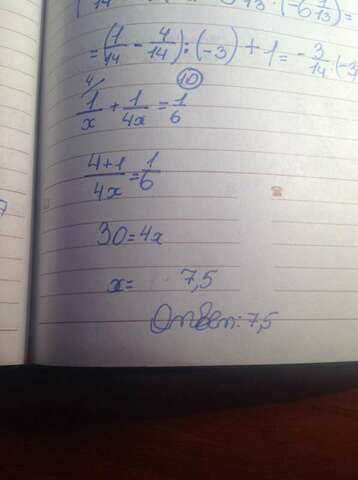 = (1/14 - 4/14) : (-3) + 1 = - 3/14 · (-3
10
4/
1/x + 1/4x = 1/6
4+1/4x = 1/6
30 = 4x
x = 7,5
Ответ: 7,5